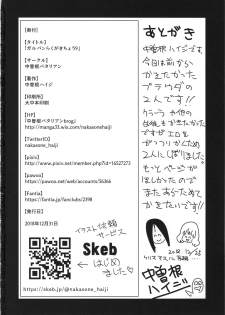 [奥付]
【タイトル】
「ガルパンらくがきちょう9」
【サークル】
中曽根バタリアン
【著作】
中曽根ハイジ
【印刷所】
大中本印刷
【HP】
「中曽根バタリアンblog」
http://manga33.wix.com/nakasonehaiji
【TwitterID】
nakasone_haiji
【pixiv】
http://www.pixiv.net/member.php?id=16527273
【pawoo】
https://pawoo.net/web/accounts/56366
【Fantia】
https://fantia.jp/fanclubs/2398
【発行日】
2018年12月31日
イラスト依頼
サービス
Skeb
はじめ
ました
https://skeb.jp/@nakasone_haiji
あとがき
中曽根ハイジです。
今回は前から
かきたかった
プラウダの
2人です!!
クラーラ や 他の
2人にばりしました。
もっとページが
ほしかったので
またあらためて
かきたいです!!
2018 12/25
クリスマスに
中曽根
ハイジ